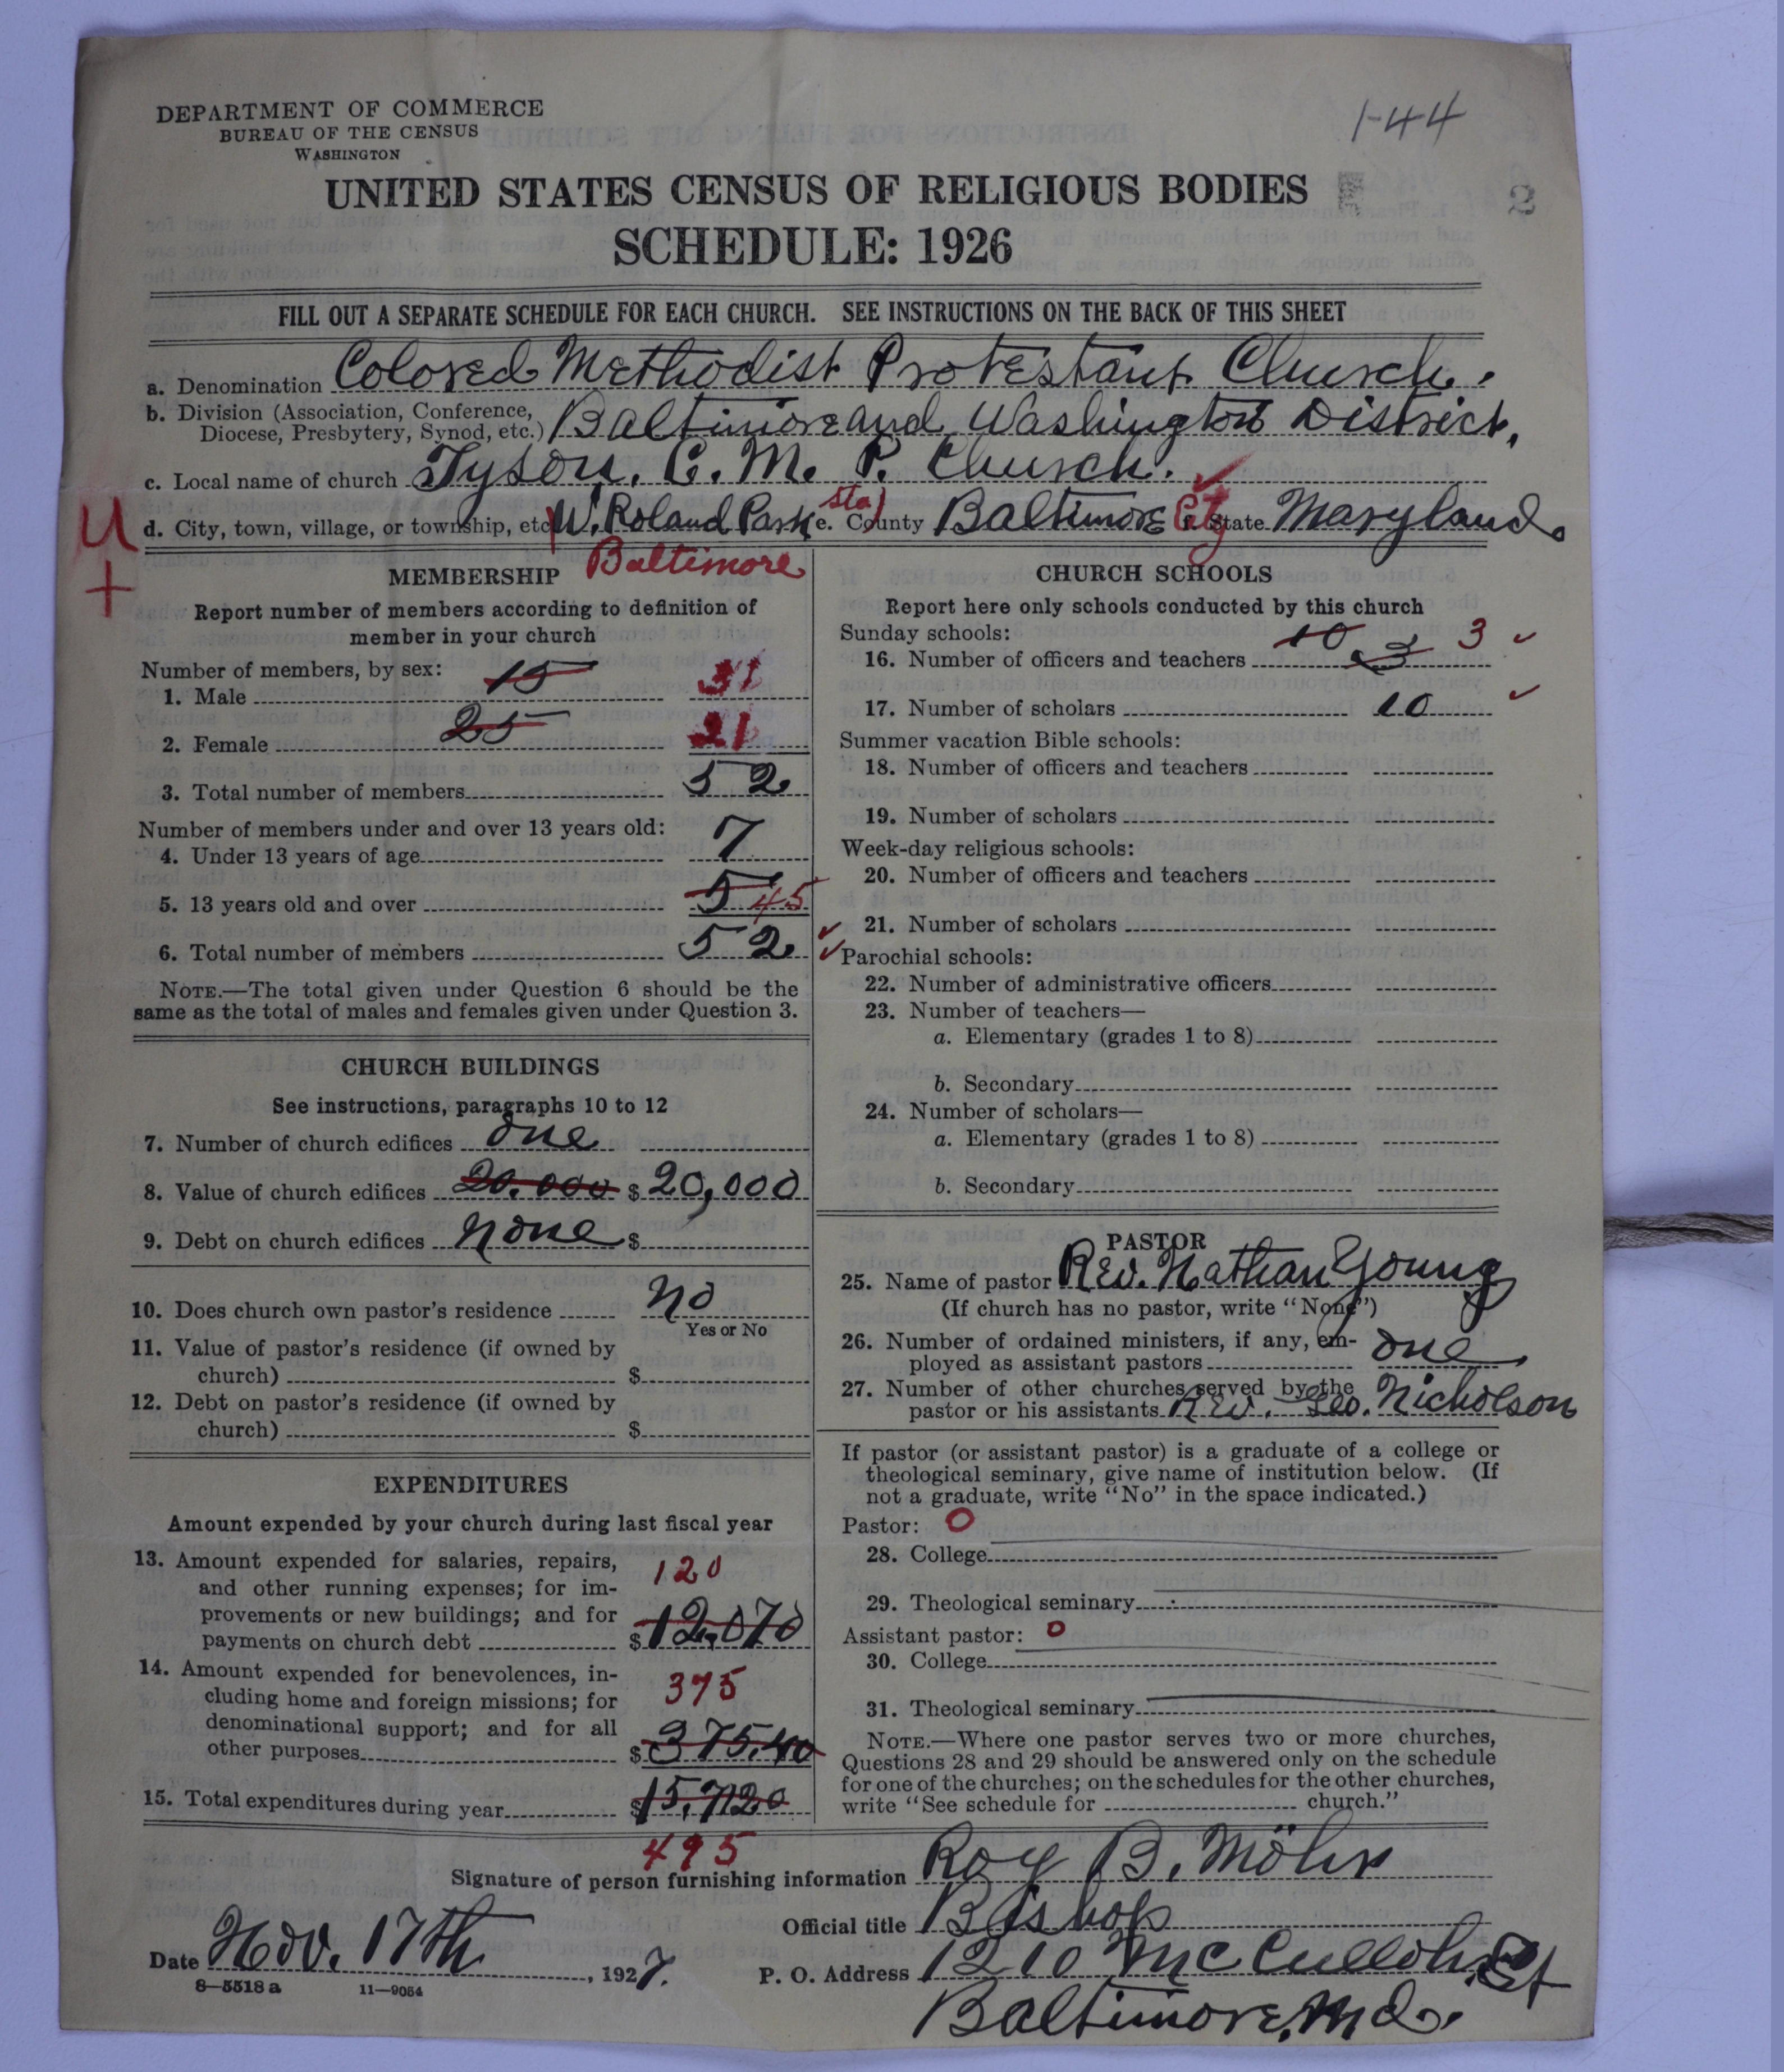 DEPARTMENT OF COMMERCE
BUREAU OF THE CENSUS
WASHINGTON
1-44
UNITED STATES CENSUS OF RELIGIOUS BODIES
2
SCHEDULE: 1926
FILL OUT A SEPARATE SCHEDULE FOR EACH CHURCH. SEE INSTRUCTIONS ON THE BACK OF THIS SHEET
a. Denomination Colored Methodist Protestant Church.
b. Division (Association, Conference, Diocese, Presbytery, Synod, etc.) Baltimore and Washington District,
c. Local name of church Tyson. C. M. P. Church.
U d. City, town, village, or township, etc. W. Roland Park sta) e. County Baltimore City f. State Maryland.
+
Baltimore
MEMBERSHIP
Report number of members according to definition of
member in your church
Number of members, by sex:
1. Male 15 31
2. Female 25 21
3. Total number of members 52
Number of members under and over 13 years old:
4. Under 13 years of age 7
5. 13 years old and over 5 45
6. Total number of members 52
NOTE.—The total given under Question 6 should be the
same as the total of males and females given under Question 3.
CHURCH BUILDINGS
See instructions, paragraphs 10 to 12
7. Number of church edifices one
8. Value of church edifices 20.000 $ 20,000
9. Debt on church edifices none $
10. Does church own pastor's residence No
Yes or No
11. Value of pastor's residence (if owned by
church) $
12. Debt on pastor's residence (if owned by
church) $
EXPENDITURES
Amount expended by your church during last fiscal year
13. Amount expended for salaries, repairs,
and other running expenses; for im- 120
provements or new buildings; and for
payments on church debt $ 12,070
14. Amount expended for benevolences, in-
cluding home and foreign missions; for 375
denominational support; and for all
other purposes $ 375.40
15. Total expenditures during year $ 15,720
495
CHURCH SCHOOLS
Report here only schools conducted by this church
Sunday schools:
16. Number of officers and teachers 10 3 3
17. Number of scholars 10
Summer vacation Bible schools:
18. Number of officers and teachers
19. Number of scholars
Week-day religious schools:
20. Number of officers and teachers
21. Number of scholars
Parochial schools:
22. Number of administrative officers
23. Number of teachers—
a. Elementary (grades 1 to 8)
b. Secondary
24. Number of scholars—
a. Elementary (grades 1 to 8)
b. Secondary
PASTOR
25. Name of pastor Rev. Nathan Young
(If church has no pastor, write "None")
26. Number of ordained ministers, if any, em-
ployed as assistant pastors one
27. Number of other churches served by the
pastor or his assistants Rev. Geo. Nicholson
If pastor (or assistant pastor) is a graduate of a college or
theological seminary, give name of institution below. (If
not a graduate, write "No" in the space indicated.)
Pastor: 0
28. College
29. Theological seminary
Assistant pastor: 0
30. College
31. Theological seminary
NOTE.—Where one pastor serves two or more churches,
Questions 28 and 29 should be answered only on the schedule
for one of the churches; on the schedules for the other churches,
write "See schedule for church."
Signature of person furnishing information Roy B. Möhr
Official title Bishop
Date Nov. 17th, 1927. P. O. Address 1210 McCulloh. St
8—5518 a 11—9054
Baltimore, Md.